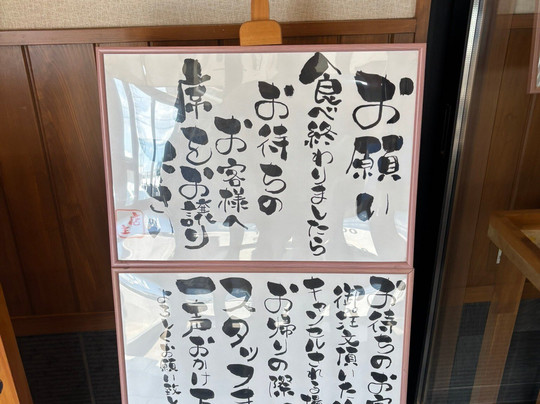 お願い
食べ終わりましたら
お待ちの
お客様へ
席をお譲り
お待ちのお客
御注文頂いた
キャンセルされる
お帰りの際
スタッフ
一声おかけ下
よろしくお願い致し